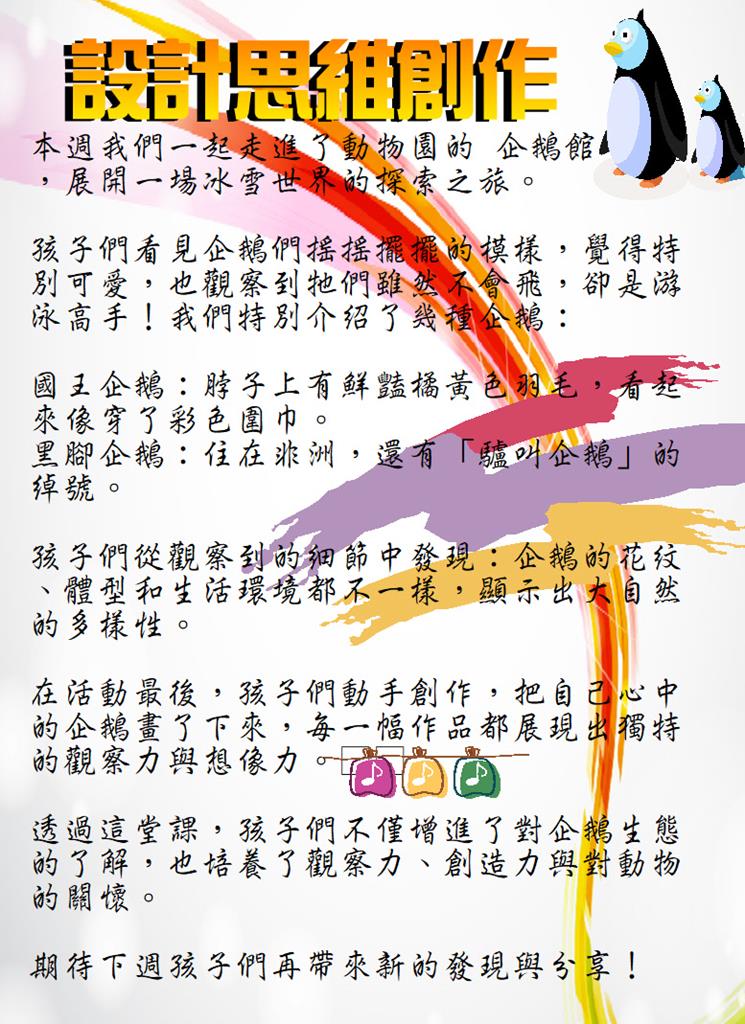 設計思維創作
本週我們一起走進了動物園的 企鵝館
，展開一場冰雪世界的探索之旅。
孩子們看見企鵝們搖搖擺擺的模樣，覺得特
別可愛，也觀察到牠們雖然不會飛，卻是游
泳高手！我們特別介紹了幾種企鵝：
國王企鵝：脖子上有鮮豔橘黃色羽毛，看起
來像穿了彩色圍巾。
黑腳企鵝：住在非洲，還有「驢叫企鵝」的
綽號。
孩子們從觀察到的細節中發現：企鵝的花紋
、體型和生活環境都不一樣，顯示出大自然
的多樣性。
在活動最後，孩子們動手創作，把自己心中
的企鵝畫了下來，每一幅作品都展現出獨特
的觀察力與想像力。
透過這堂課，孩子們不僅增進了對企鵝生態
的了解，也培養了觀察力、創造力與對動物
的關懷。
期待下週孩子們再帶來新的發現與分享！